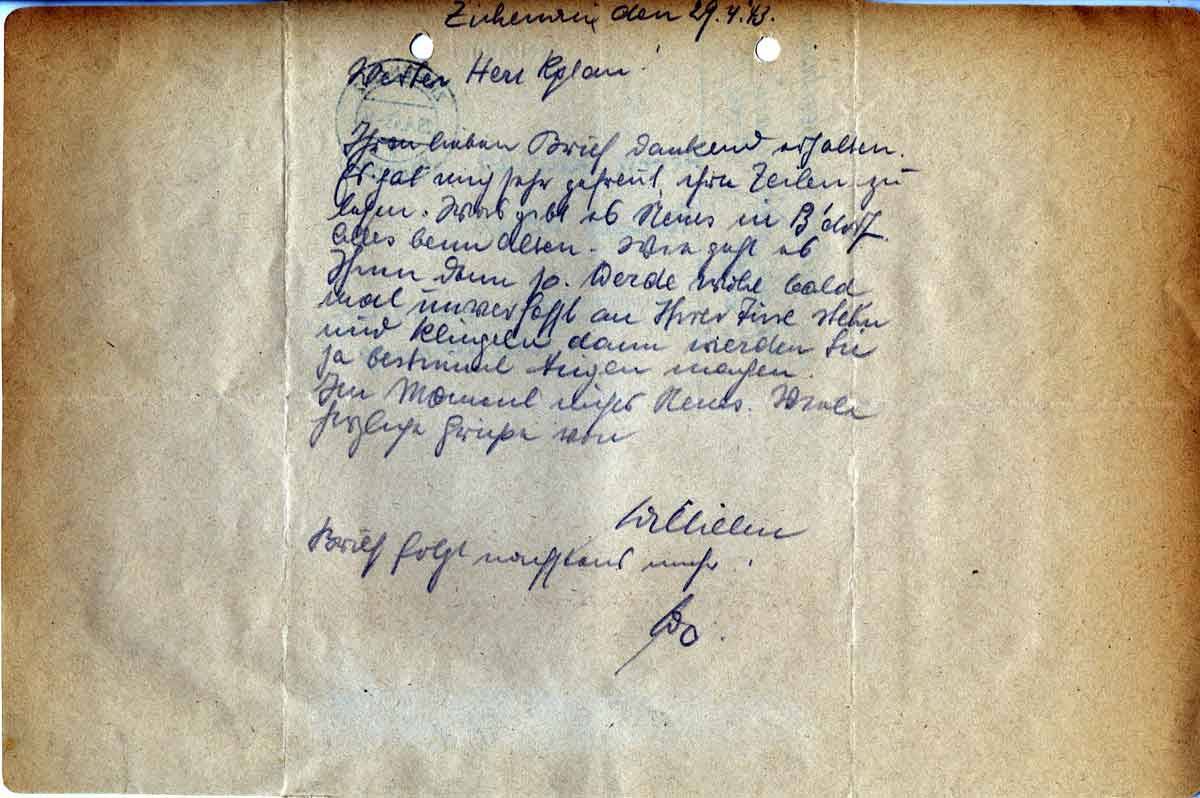 den 29.4.43.
Werter Herr Kplan!
Ihren lieben Brief dankend erhalten.
Es hat mich sehr gefreut, ihre Zeilen zu
lesen. Was gibt es Neues in B'dorf.
Alles beim alten. Wie geht es
Ihnen denn so. Werde wohl bald
mal unverhofft an Ihrer Türe stehn
und klingeln dann werden Sie
ja bestimmt Augen machen.
Im Moment nichts Neues. Viele
herzliche Grüße von
Brief folgt nächstens mehr.